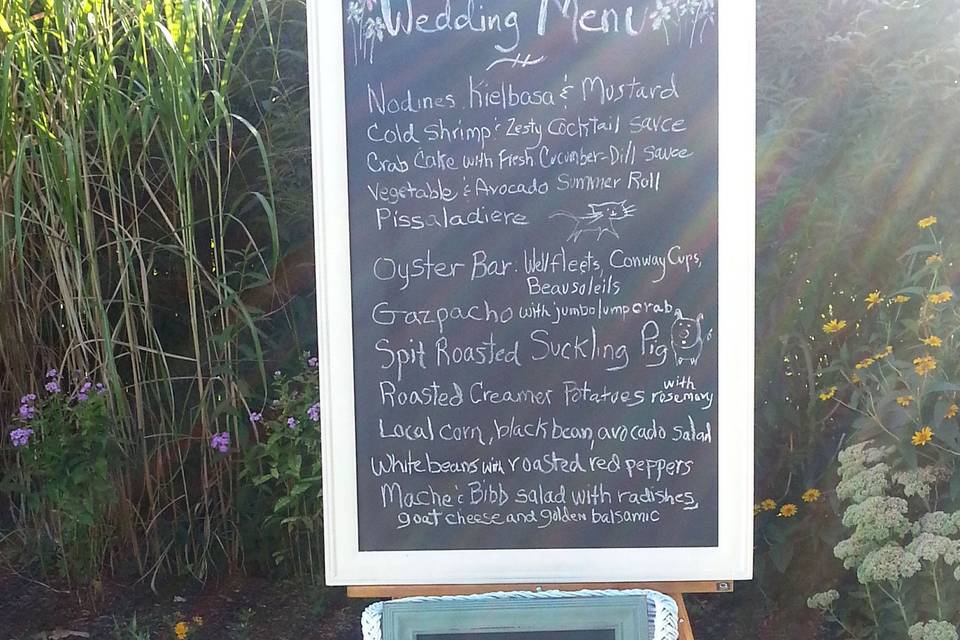 Wedding Menu
Nodines Kielbasa & Mustard
Cold Shrimp & Zesty Cocktail sauce
Crab Cake with Fresh Cucumber-Dill sauce
Vegetable & Avocado Summer Roll
Pissaladiere
Oyster Bar. Wellfleets, Conway Cups,
Beausoleils
Gazpacho with jumbo lump crab
Spit Roasted Suckling Pig
Roasted Creamer Potatoes with rosemary
Local corn, black bean, avocado salad
White beans with roasted red peppers
Mache & Bibb salad with radishes,
goat cheese and golden balsamic